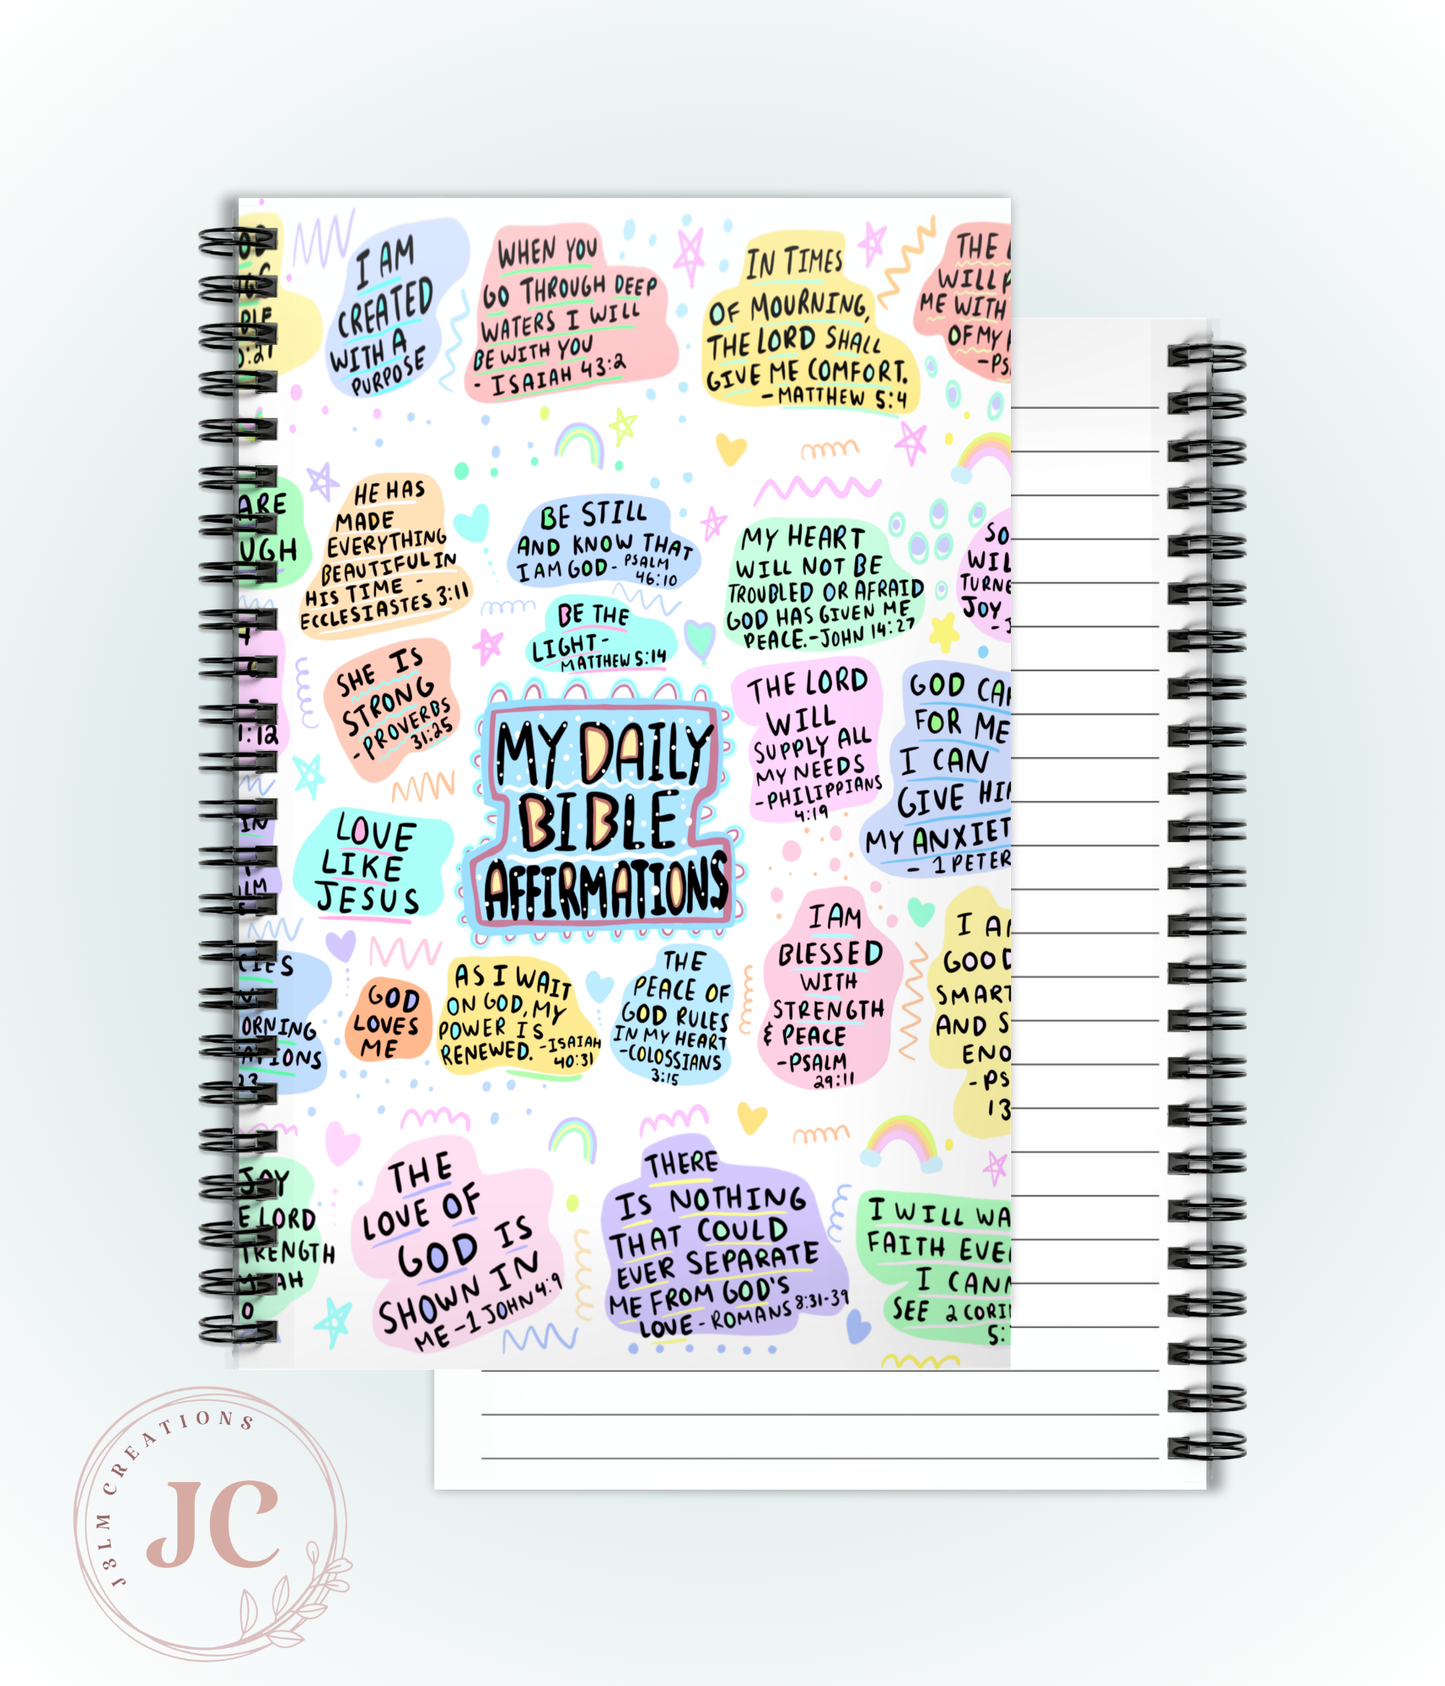 I AM
CREATED
WITH A
PURPOSE
WHEN YOU
GO THROUGH DEEP
WATERS I WILL
BE WITH YOU
- ISAIAH 43:2
IN TIMES
OF MOURNING,
THE LORD SHALL
GIVE ME COMFORT.
-MATTHEW 5:4
THE
WILL
ME WITH
OF MY
ARE
UGH
HE HAS
MADE
EVERYTHING
BEAUTIFUL IN
HIS TIME -
ECCLESIASTES 3:11
BE STILL
AND KNOW THAT
I AM GOD- PSALM
46:10
BE THE
LIGHT-
MATTHEW 5:14
MY HEART
WILL NOT BE
TROUBLED OR AFRAID
GOD HAS GIVEN ME
PEACE.-JOHN 14:27
SO
WIL
TURNE
JOY
1:12
SHE IS
STRONG
-PROVERBS
31:25
MY DAILY
BIBLE
AFFIRMATIONS
THE LORD
WILL
SUPPLY ALL
MY NEEDS
-PHILIPPIANS
4:19
GOD CA
FOR ME
I CAN
GIVE HI
MY ANXIET
- 1 PETER
IN
LOVE
LIKE
JESUS
CIES
ORNING
23
GOD
LOVES
ME
AS I WAIT
ON GOD, MY
POWER IS
RENEWED. -ISAIAH
40:31
THE
PEACE OF
GOD RULES
IN MY HEART
-COLOSSIANS
3:15
I AM
BLESSED
WITH
STRENGTH
& PEACE
-PSALM
29:11
I A
GOOD
SMART
AND S
ENO
-PS
13
JOY
E LORD
TRENGTH
THE
LOVE OF
GOD IS
SHOWN IN
ME -1 JOHN 4:9
THERE
IS NOTHING
THAT COULD
EVER SEPARATE
ME FROM GOD'S
LOVE - ROMANS 8:31-39
I WILL WA
FAITH EVE
I CAN
SEE 2 CORI
5:
J3LM CREATIONS
JC